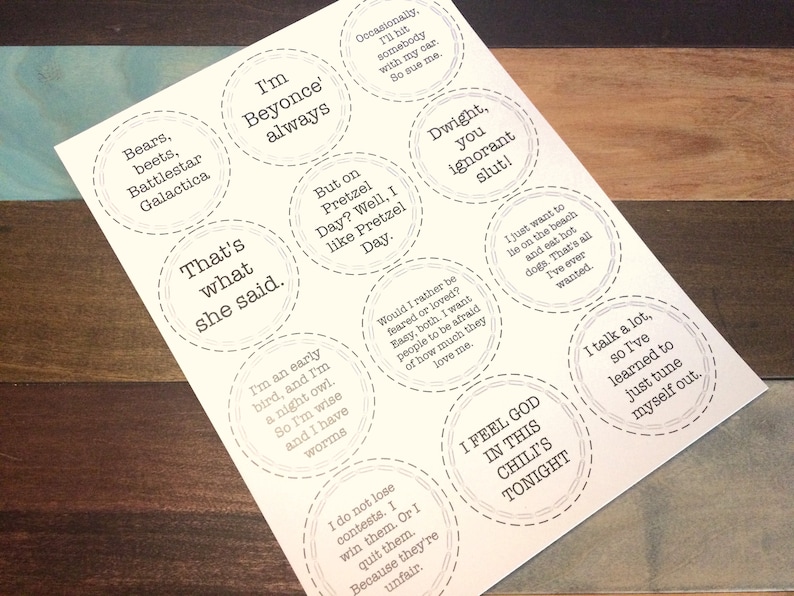 Bears,
beets,
Battlestar
Galactica.
I'm
Beyonce'
always
Occasionally,
I'll hit
somebody
with my car.
So sue me.
That's
what
she said.
But on
Pretzel
Day? Well, I
like Pretzel
Day.
Dwight,
you
ignorant
slut!
I'm an early
bird, and I'm
a night owl.
So I'm wise
and I have
worms
Would I rather be
feared or loved?
Easy, both. I want
people to be afraid
of how much they
love me.
I just want to
lie on the beach
and eat hot
dogs. That's all
I've ever
wanted.
I do not lose
contests. I
win them. Or I
quit them.
Because they're
unfair.
I FEEL GOD
IN THIS
CHILI'S
TONIGHT
I talk a lot,
so I've
learned to
just tune
myself out.